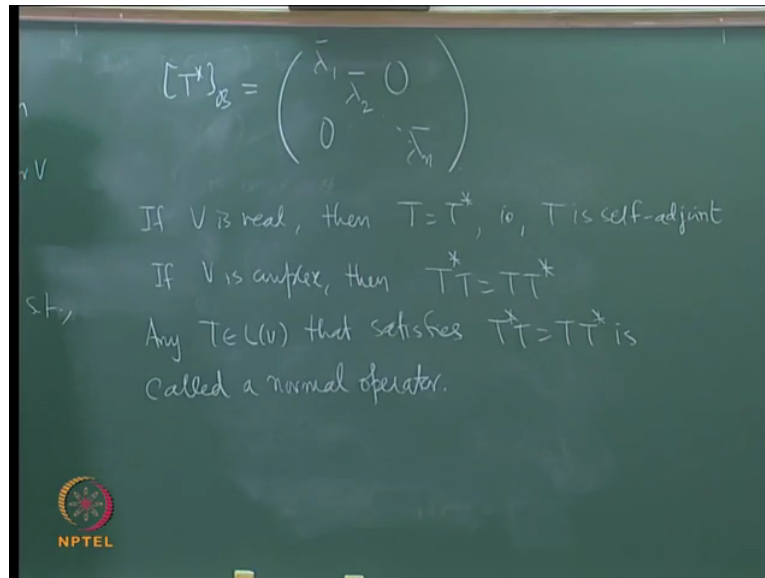 [T*]_B = ( λ̄₁ λ̄₂ 0
0 ⋱ λ̄ₙ )
n
r V
If V is real, then T = T*, ie, T is self-adjoint
If V is complex, then T*T = TT*
st,
Any T∈L(V) that satisfies T*T = TT* is
called a normal operator.
NPTEL